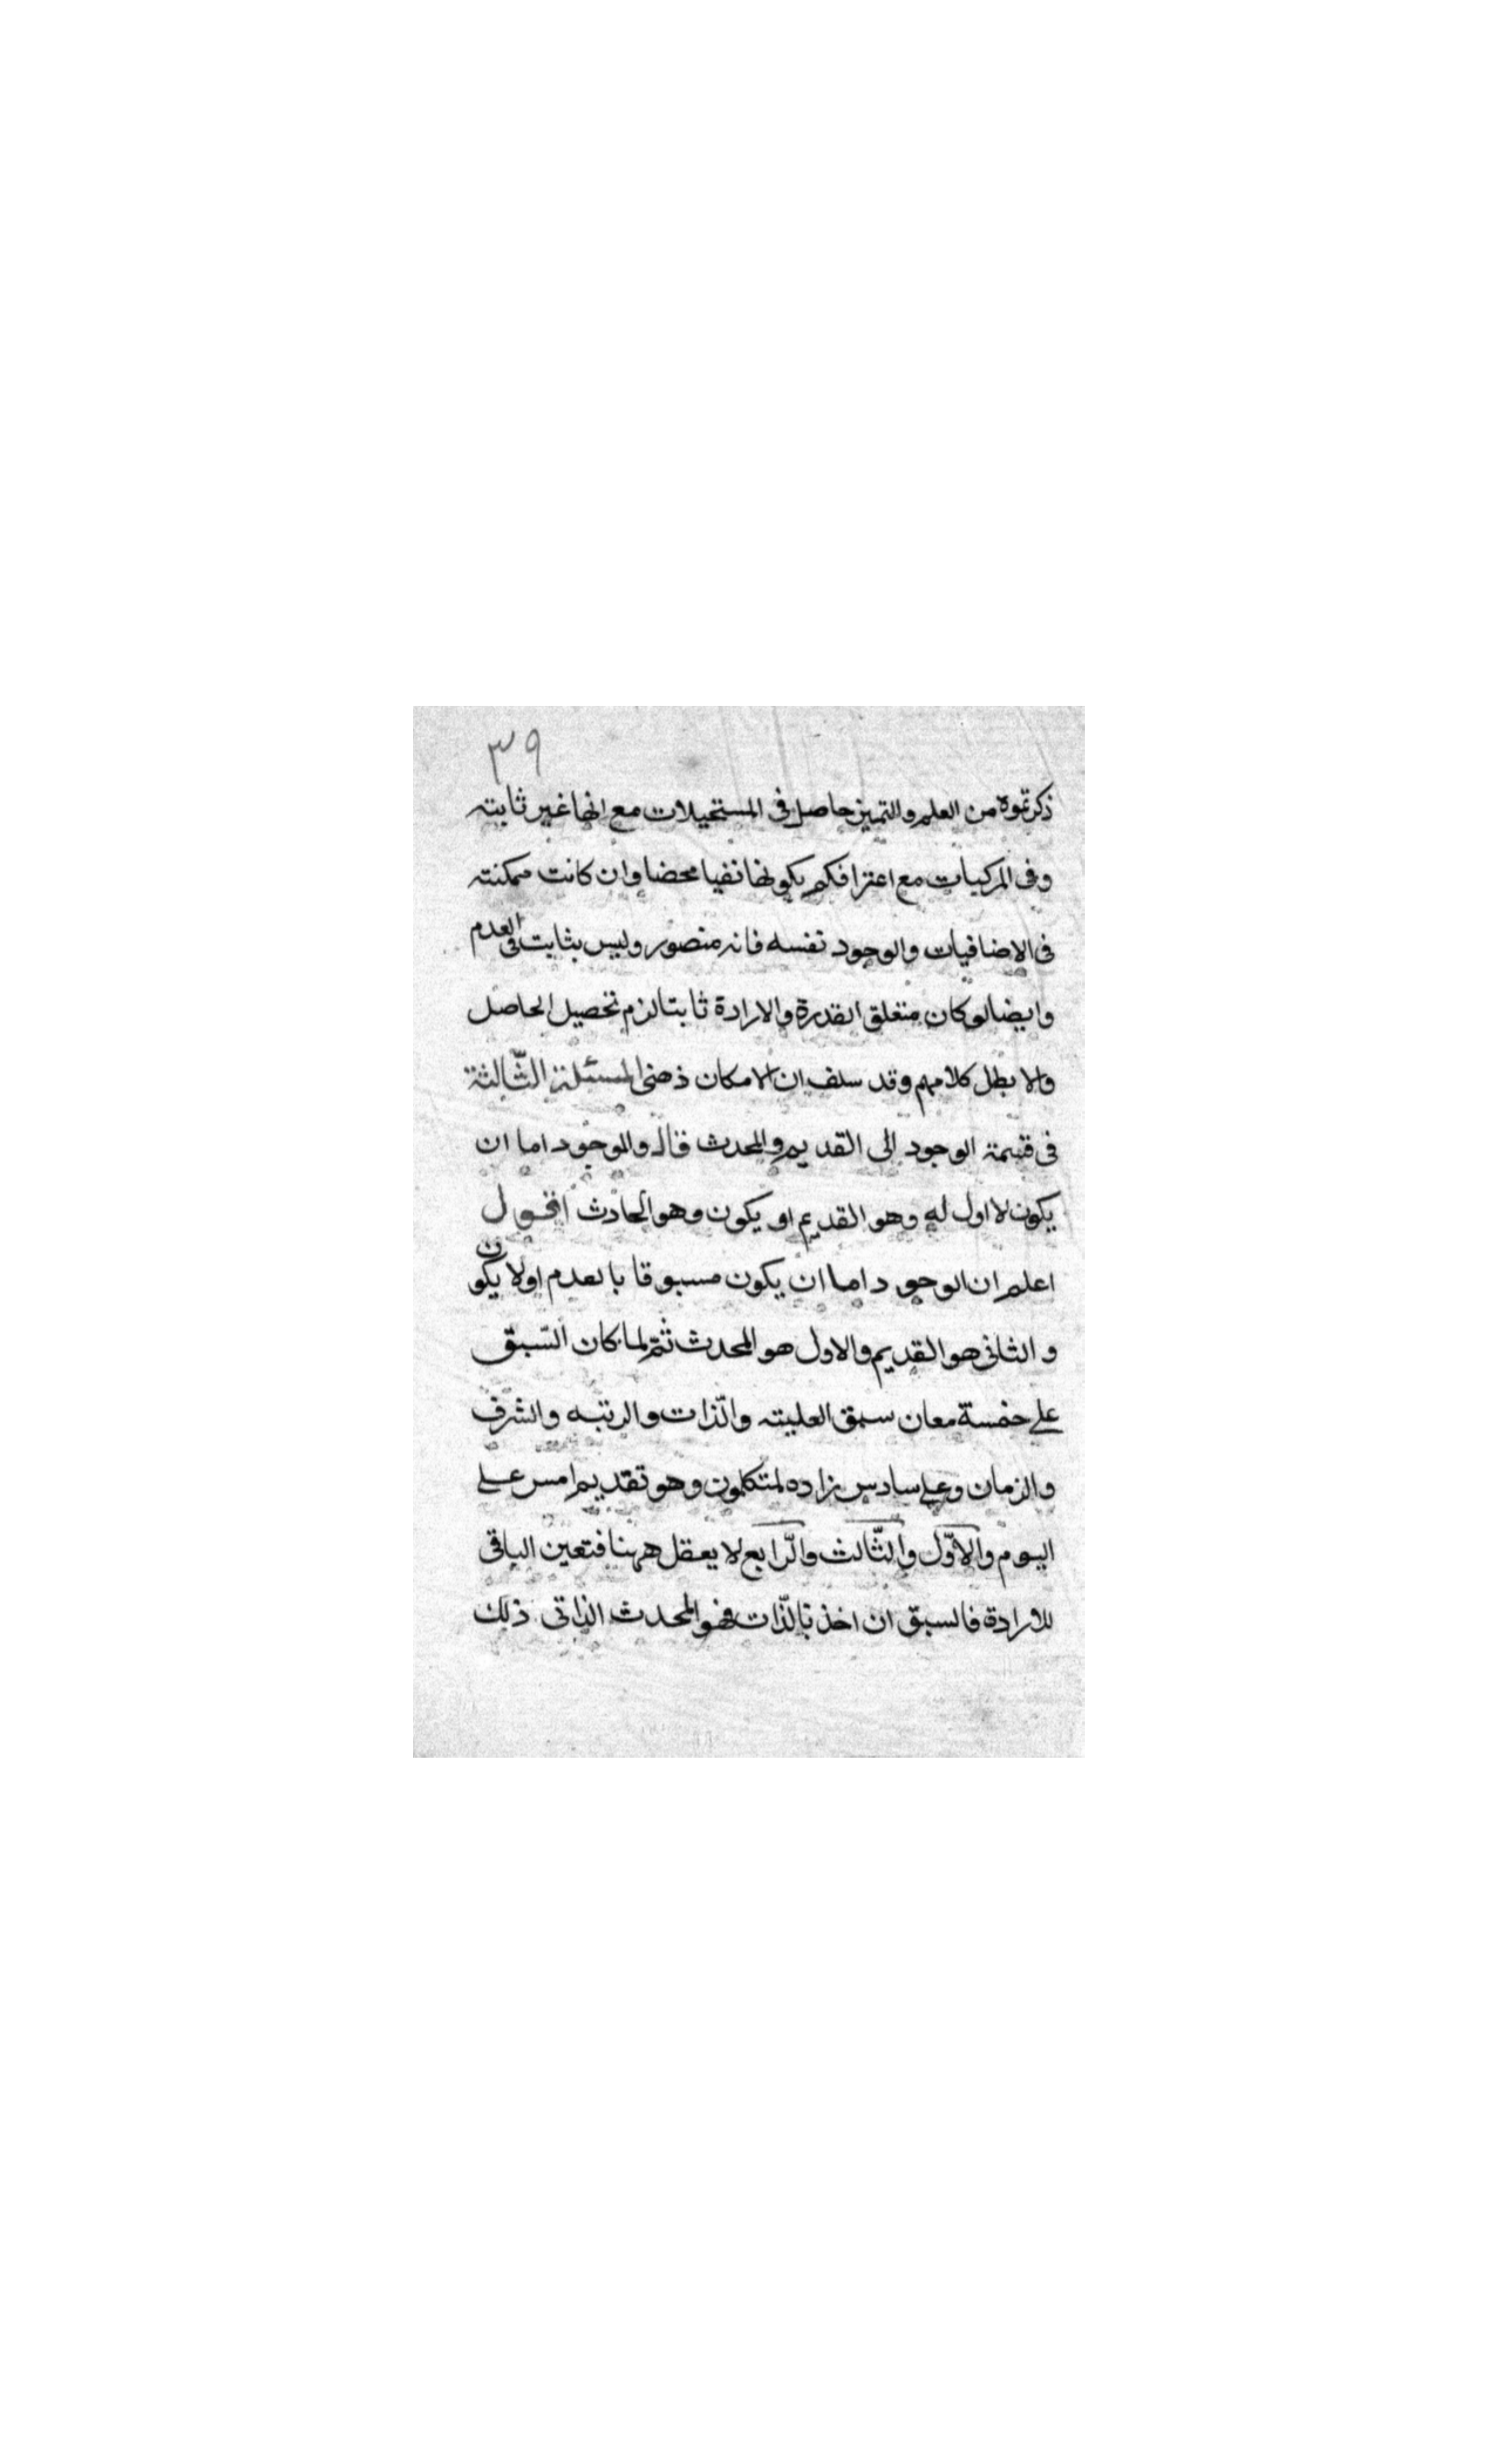 ٣٩
ذكرتموه من العلم والتميز حاصل فى المستحيلات مع انها غير ثابتة
وفى المركبات مع اعترافكم بكونها نفيا محضا وان كانت ممكنة
فى الاضافيات والوجود نفسه فانه متصور وليس بثابت فى العدم
وايضا لو كان متعلق القدرة والارادة ثابتا لزم تحصيل الحاصل
والا بطل كلامهم وقد سلف ان الامكان ذهنى المسئلة الثّالثة
فى قسمة الوجود الى القديم والمحدث قال والموجود اما ان
يكون لا اول له وهو القديم او يكون وهو الحادث اقول
اعلم ان الوجود اما ان يكون مسبوقا بالعدم اولا يكون
والثانى هو القديم والاول هو المحدث ثمّ لما كان السّبق
على خمسة معان سبق العلية والذّات والرتبه والشرف
والزمان وعلى سادس زاده المتكلمون وهو تقديم امس على
اليوم والاوّل والثّالث والرّابع لا يعقل ههنا فتعين الباقى
للارادة فالسبق ان اخذ بالذّات فهو المحدث الذاتى ذلك